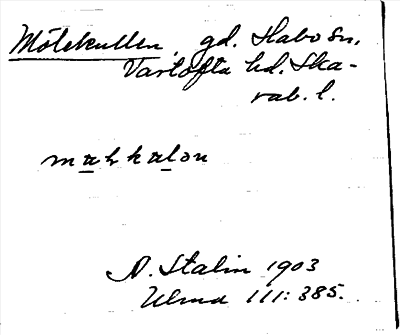 Mölekullen, gd. Habo sn,
Vartofta hd. Ska-
rab. l.
mahkalən
N. Stalin 1903
Ulma III: 385.